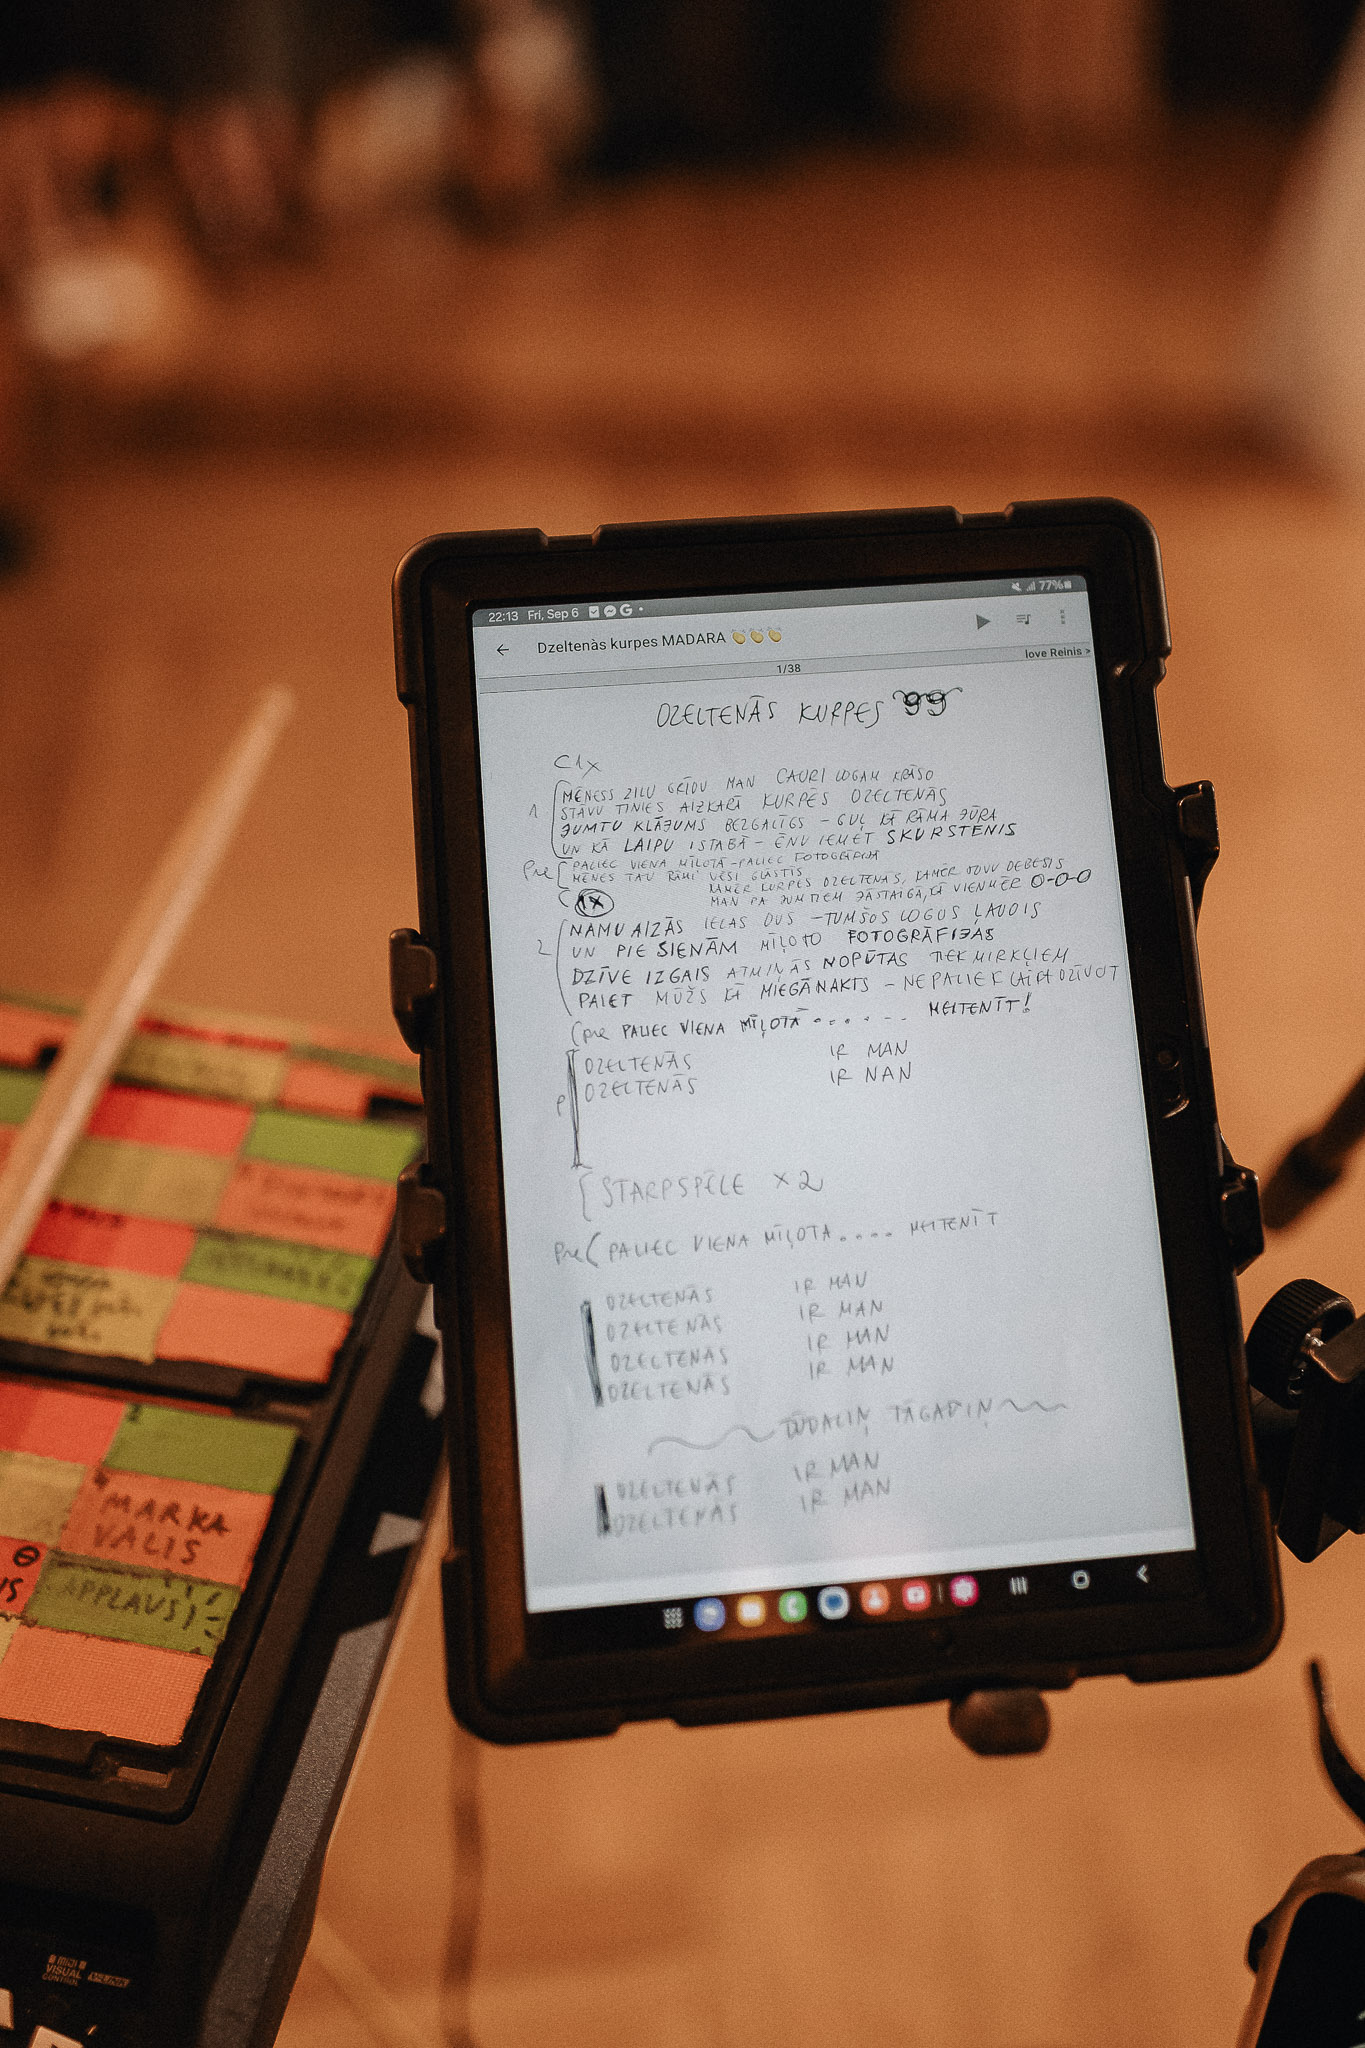 22:13 Fri, Sep 6
77%
Dzeltenàs kurpes MADARA 👏👏👏
1/38
love Reinis >
DZELTENĀS KURPES 99
C1X
1 MĒNESS ZILU GRĪDU MAN CAURI LOGAM KRĀSO
STĀVU TINIES AIZKARĀ KURPĒS DZELTENĀS
JUMTU KLĀJUMS BEZGALĪGS - GUĻ KĀ RĀMA JŪRA
UN KĀ LAIPU ISTABĀ - ĒNU IEMET SKURSTENIS
Pre PALIEC VIENA MĪĻOTĀ - PALIEC FOTOGRĀFIJĀ
MĒNES TAV RĀMI VĒSI GLĀSTĪS
KAMĒR KURPES DZELTENĀS, KAMĒR DEBESIS
1X MAN PA JUMTIEM JĀSTAIGĀ, KĀ VIENMĒR O-O-O
2 NAMU AIZĀS IELAS DUS - TUMŠOS LOGUS ĻAUDIS
UN PIE SIENĀM MĪĻOTO FOTOGRĀFIJAS
DZĪVE IZGAIS ATMIŅĀS NOPŪTAS TIEK MIRKĻIEM
PAIET MŪŽS KĀ MIEGĀNAKTS - NEPALIEK LAIKA DZĪVOT
(pre PALIEC VIENA MĪĻOTĀ . . . . . . . MEITENĪT!
DZELTENĀS IR MAN
P DZELTENĀS IR MAN
STARPSPĒLE X2
Pre ( PALIEC VIENA MĪĻOTA . . . . MEITENĪT
DZELTENĀS IR MAN
DZELTENĀS IR MAN
DZELTENAS IR MAN
DZELTENĀS IR MAN
TAGADIŅ
DZELTENĀS IR MAN
DZELTENAS IR MAN
2
4
MARKA
VALIS
APPLAUSI
VISUAL
CONTROL
V-LINK